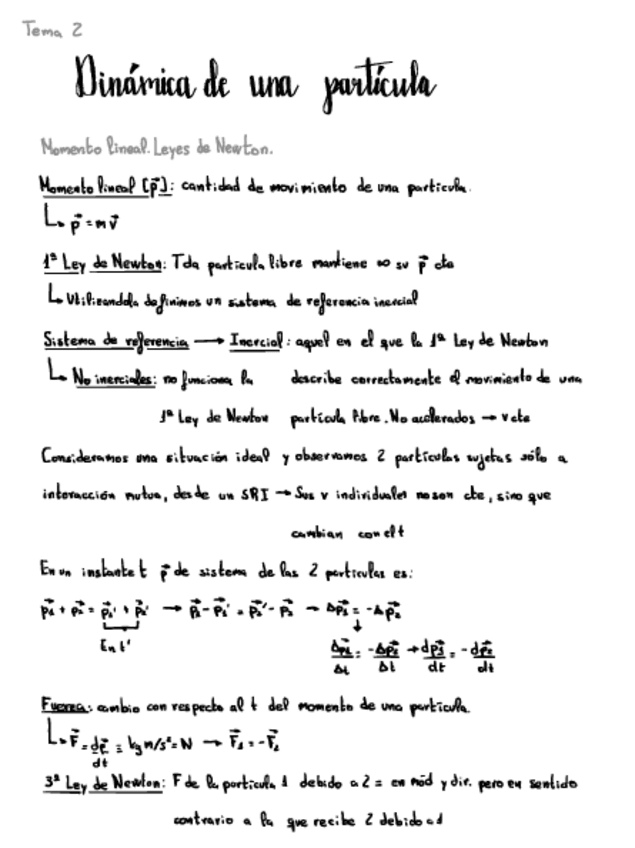 Tema 2
Dinámica de una partícula
Momento lineal. Leyes de Newton.
Momento lineal [p⃗]: cantidad de movimiento de una partícula.
↳ p⃗ = m v⃗
1ª Ley de Newton: Tda partícula libre mantiene su p⃗ cte
↳ Utilizandola definimos un sistema de referencia inercial
Sistema de referencia → Inercial: aquel en el que la 1ª Ley de Newton
↳ No inerciales: no funciona la describe correctamente el movimiento de una
1ª Ley de Newton partícula libre. No acelerados → v cte
Consideramos una situación ideal y observamos 2 partículas sujetas sólo a
interacción mutua, desde un SRI → Sus v individuales no son cte, sino que
cambian con el t
En un instante t p⃗ de sistema de las 2 partículas es:
p⃗₁ + p⃗₂ = p⃗₁' + p⃗₂' → p⃗₁ - p⃗₁' = p⃗₂' - p⃗₂ → Δp⃗₁ = -Δp⃗₂
En t'
Δp⃗₁/Δt = -Δp⃗₂/Δt → dp⃗₁/dt = -dp⃗₂/dt
Fuerza: cambio con respecto al t del momento de una partícula.
↳ F⃗ = dp⃗/dt ≡ kg m/s² = N → F⃗₁ = -F⃗₂
3ª Ley de Newton: F de la partícula 1 debido a 2 = en mód y dir. pero en sentido
contrario a la que recibe 2 debido a 1